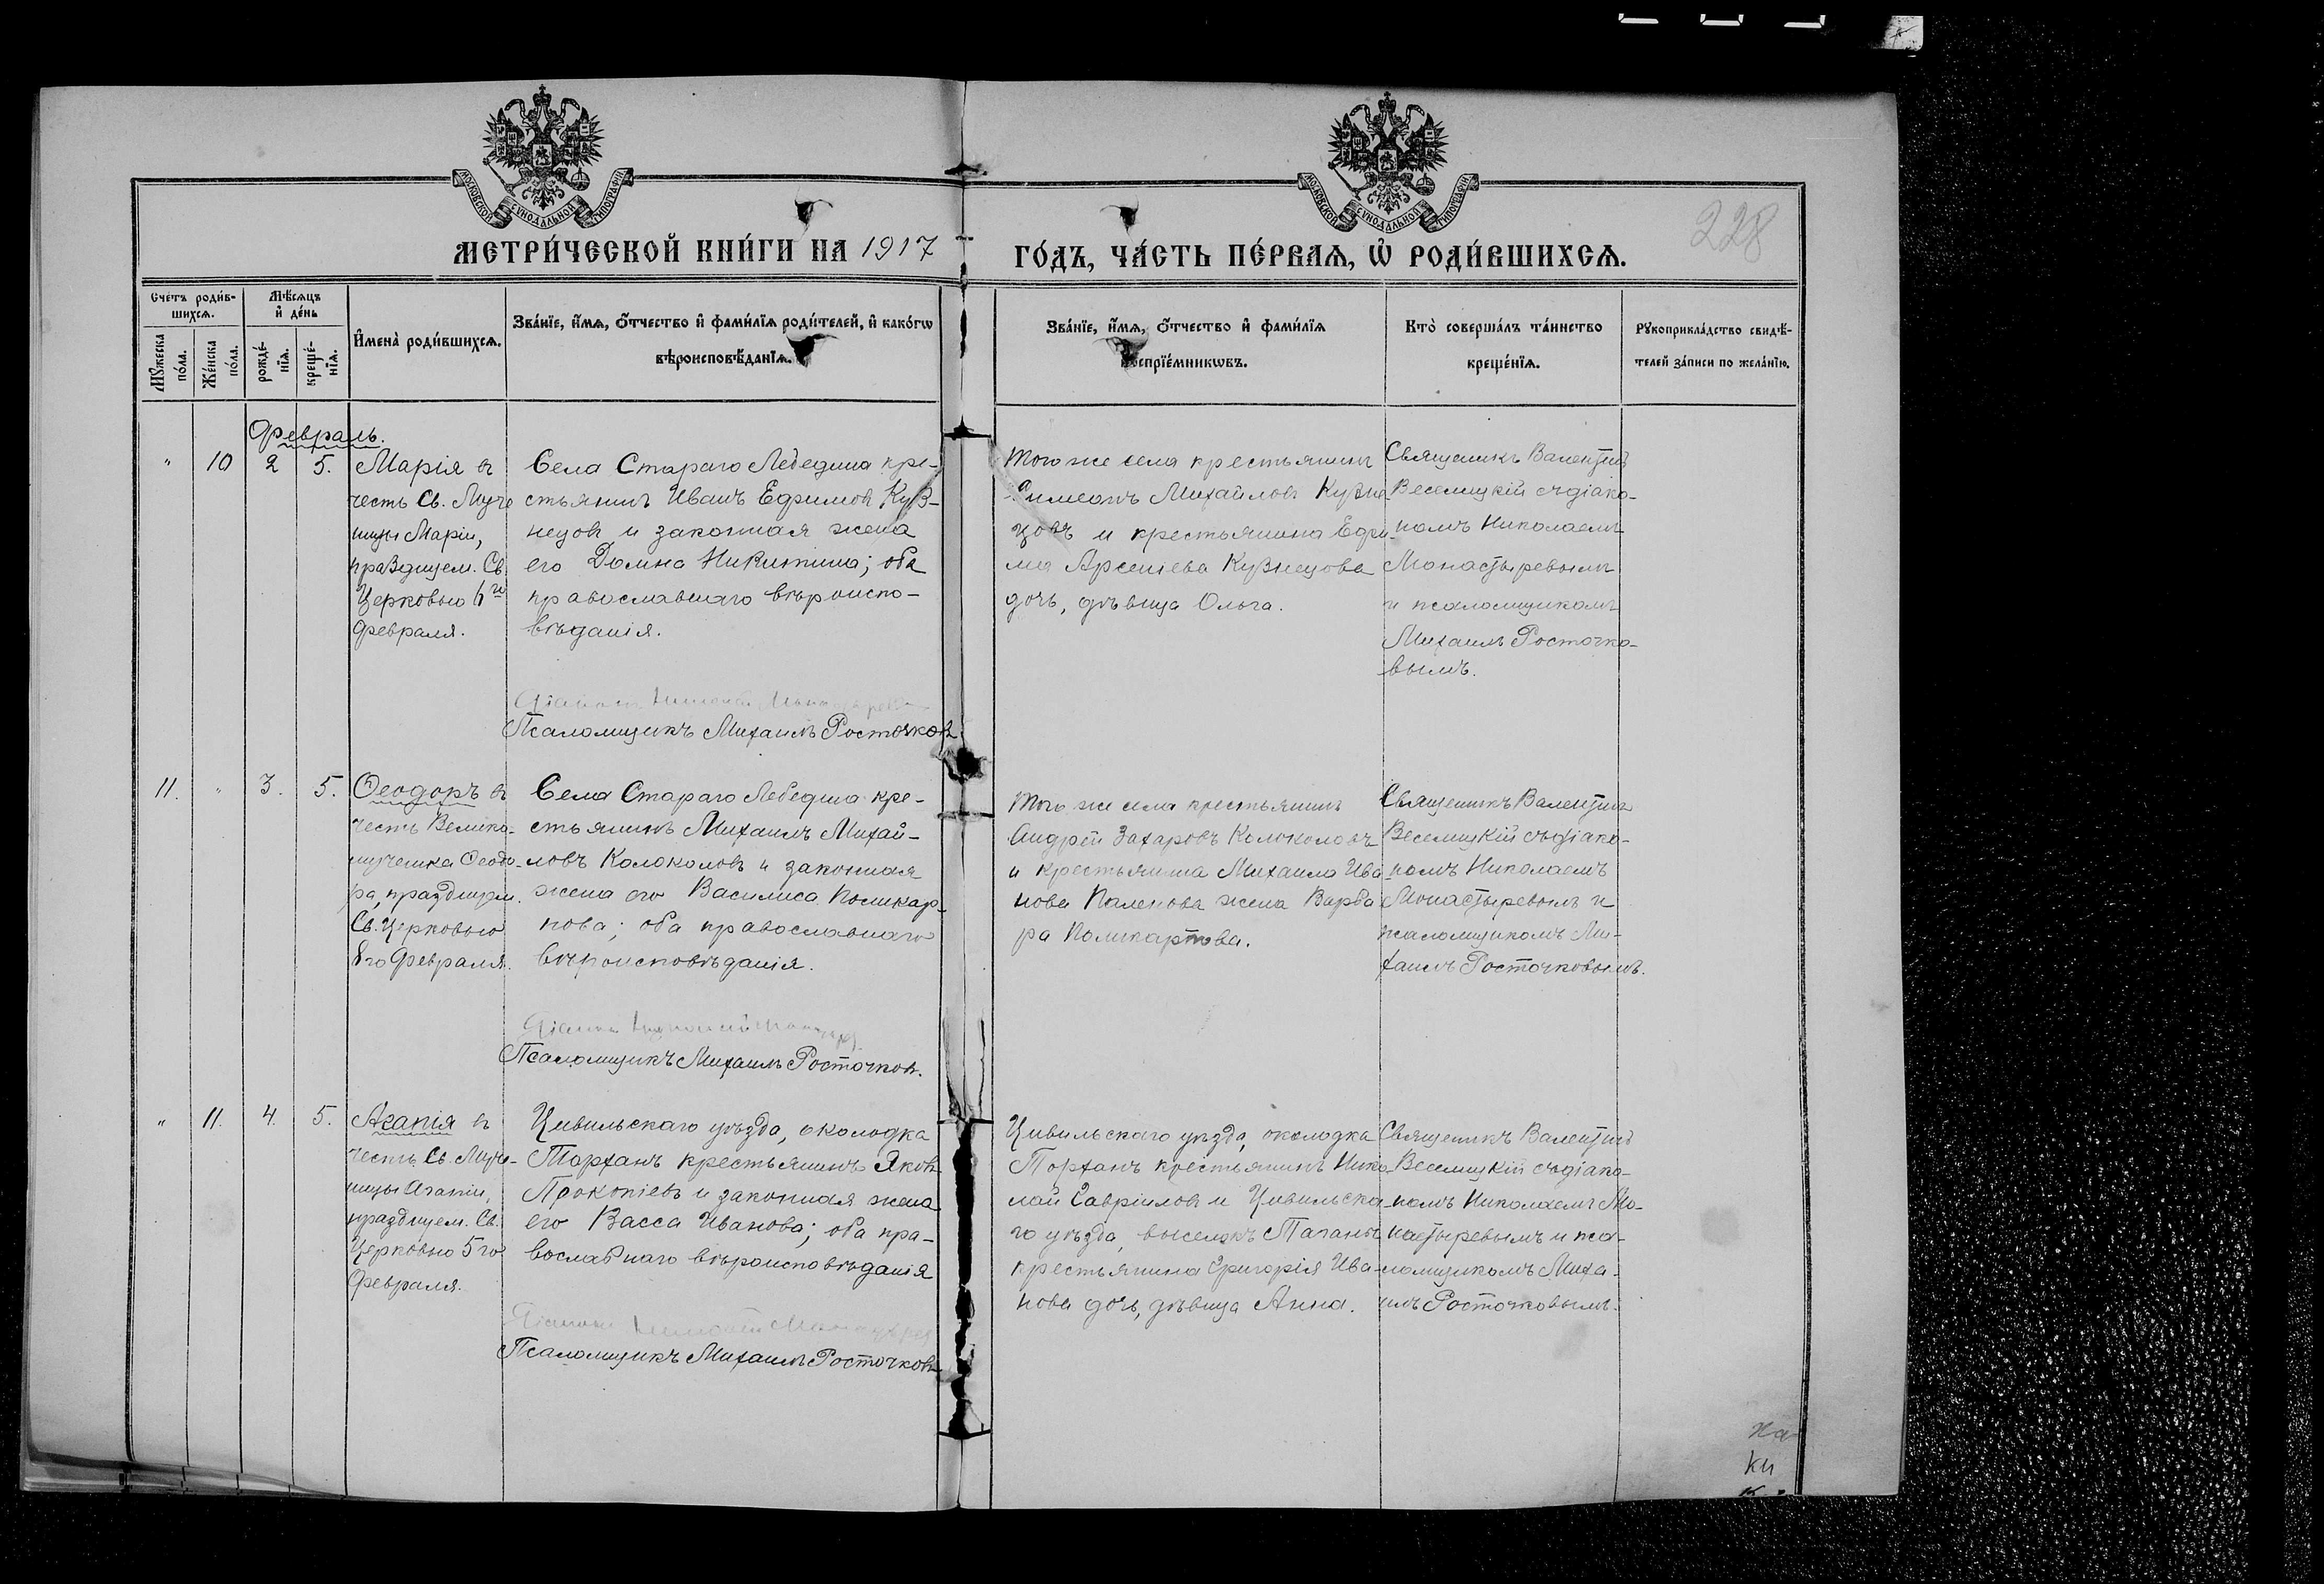 МОСКОВСКОЙ СѴНОДАЛЬНОЙ ТИПОГРАФІИ
МОСКОВСКОЙ СѴНОДАЛЬНОЙ ТИПОГРАФІИ
228
МЕТРИ́ЧЕСКОЙ КНИ́ГИ НА 1917
ГО́ДЪ, ЧА́СТЬ ПЕ́РВАѦ, Ѡ҆ РОДИ́ВШИХСѦ.
Сче́тъ роди́в-
шихсѧ.
Мѣ́сѧцъ
и҆ де́нь
Мꙋ́жеска
по́ла.
Же́нска
по́ла.
рожде́-
нїѧ.
креще́-
нїѧ.
И҆мена̀ роди́вшихсѧ.
Зва́нїе, и҆́мѧ, ѻ҆́тчество и҆ фами́лїѧ роди́телей, и҆ како́гѡ
вѣроисповѣ́данїѧ.
Зва́нїе, и҆́мѧ, ѻ҆́тчество и҆ фами́лїѧ
воспрїе́мникѡвъ.
Кто̀ соверша́лъ та́инство
креще́нїѧ.
Рꙋкоприкла́дство свидѣ́-
телей за́писи по жела́нїю.
Февраль.
" 10 2 5.
Марія въ
честь Св. Муче
ницы Маріи,
празднуем. Св.
Церковью 6го
Февраля.
Села Стараго Лебедина кре-
стьянинъ Иванъ Ефимовъ Куз-
нецовъ и законная жена
его Домна Никитина; оба
православнаго вѣроиспо-
вѣданія.
Псаломщикъ Михаилъ Росточковъ.
Того же села крестьянинъ
Симеонъ Михайловъ Кузне-
цовъ и крестьянина Ефи-
ма Арсеніева Кузнецова
дочь, дѣвица Ольга.
Священникъ Валентинъ
Веселицкій съ діако-
номъ Николаемъ
Монастыревымъ
и псаломщикомъ
Михаилъ Росточко-
вымъ.
11. " 3. 5.
Ѳеодоръ въ
честь Велико-
мученика Ѳеодо-
ра, празднуем.
Св. Церковью
8го Февраля.
Села Стараго Лебедина кре-
стьянинъ Михаилъ Михай-
ловъ Колоколовъ и законная
жена его Василиса Поликар-
пова; оба православнаго
вѣроисповѣданія.
Псаломщикъ Михаилъ Росточковъ.
Того же села крестьянинъ
Андрей Захаровъ Колоколовъ
и крестьянина Михаила Ива
нова Паленова жена Варва
ра Поликарпова.
Священникъ Валентинъ
Веселицкій съ діако-
номъ Николаемъ
Монастыревымъ и
псаломщикомъ Ми-
хаилъ Росточковымъ.
" 11. 4. 5.
Агапія въ
честь Св. Муче-
ницы Агапіи,
празднуем. Св.
Церковью 5го
Февраля.
Цивильскаго уѣзда, околодка
Тарханъ крестьянинъ Яковъ
Прокопіевъ и законная жена
его Васса Иванова; оба пра-
вославнаго вѣроисповѣданія
Псаломщикъ Михаилъ Росточковъ
Цивильскаго уѣзда, околодка
Тарханъ крестьянинъ Нико
лай Гавріиловъ и Цивильска-
го уѣзда, выселокъ
крестьянина Григорія Ива-
нова дочь, дѣвица Анна.
Священникъ Валентинъ
Веселицкій съ діако-
номъ Николаемъ Мо-
настыревымъ и пса-
ломщикомъ Миха-
илъ Росточковымъ.
на
кн